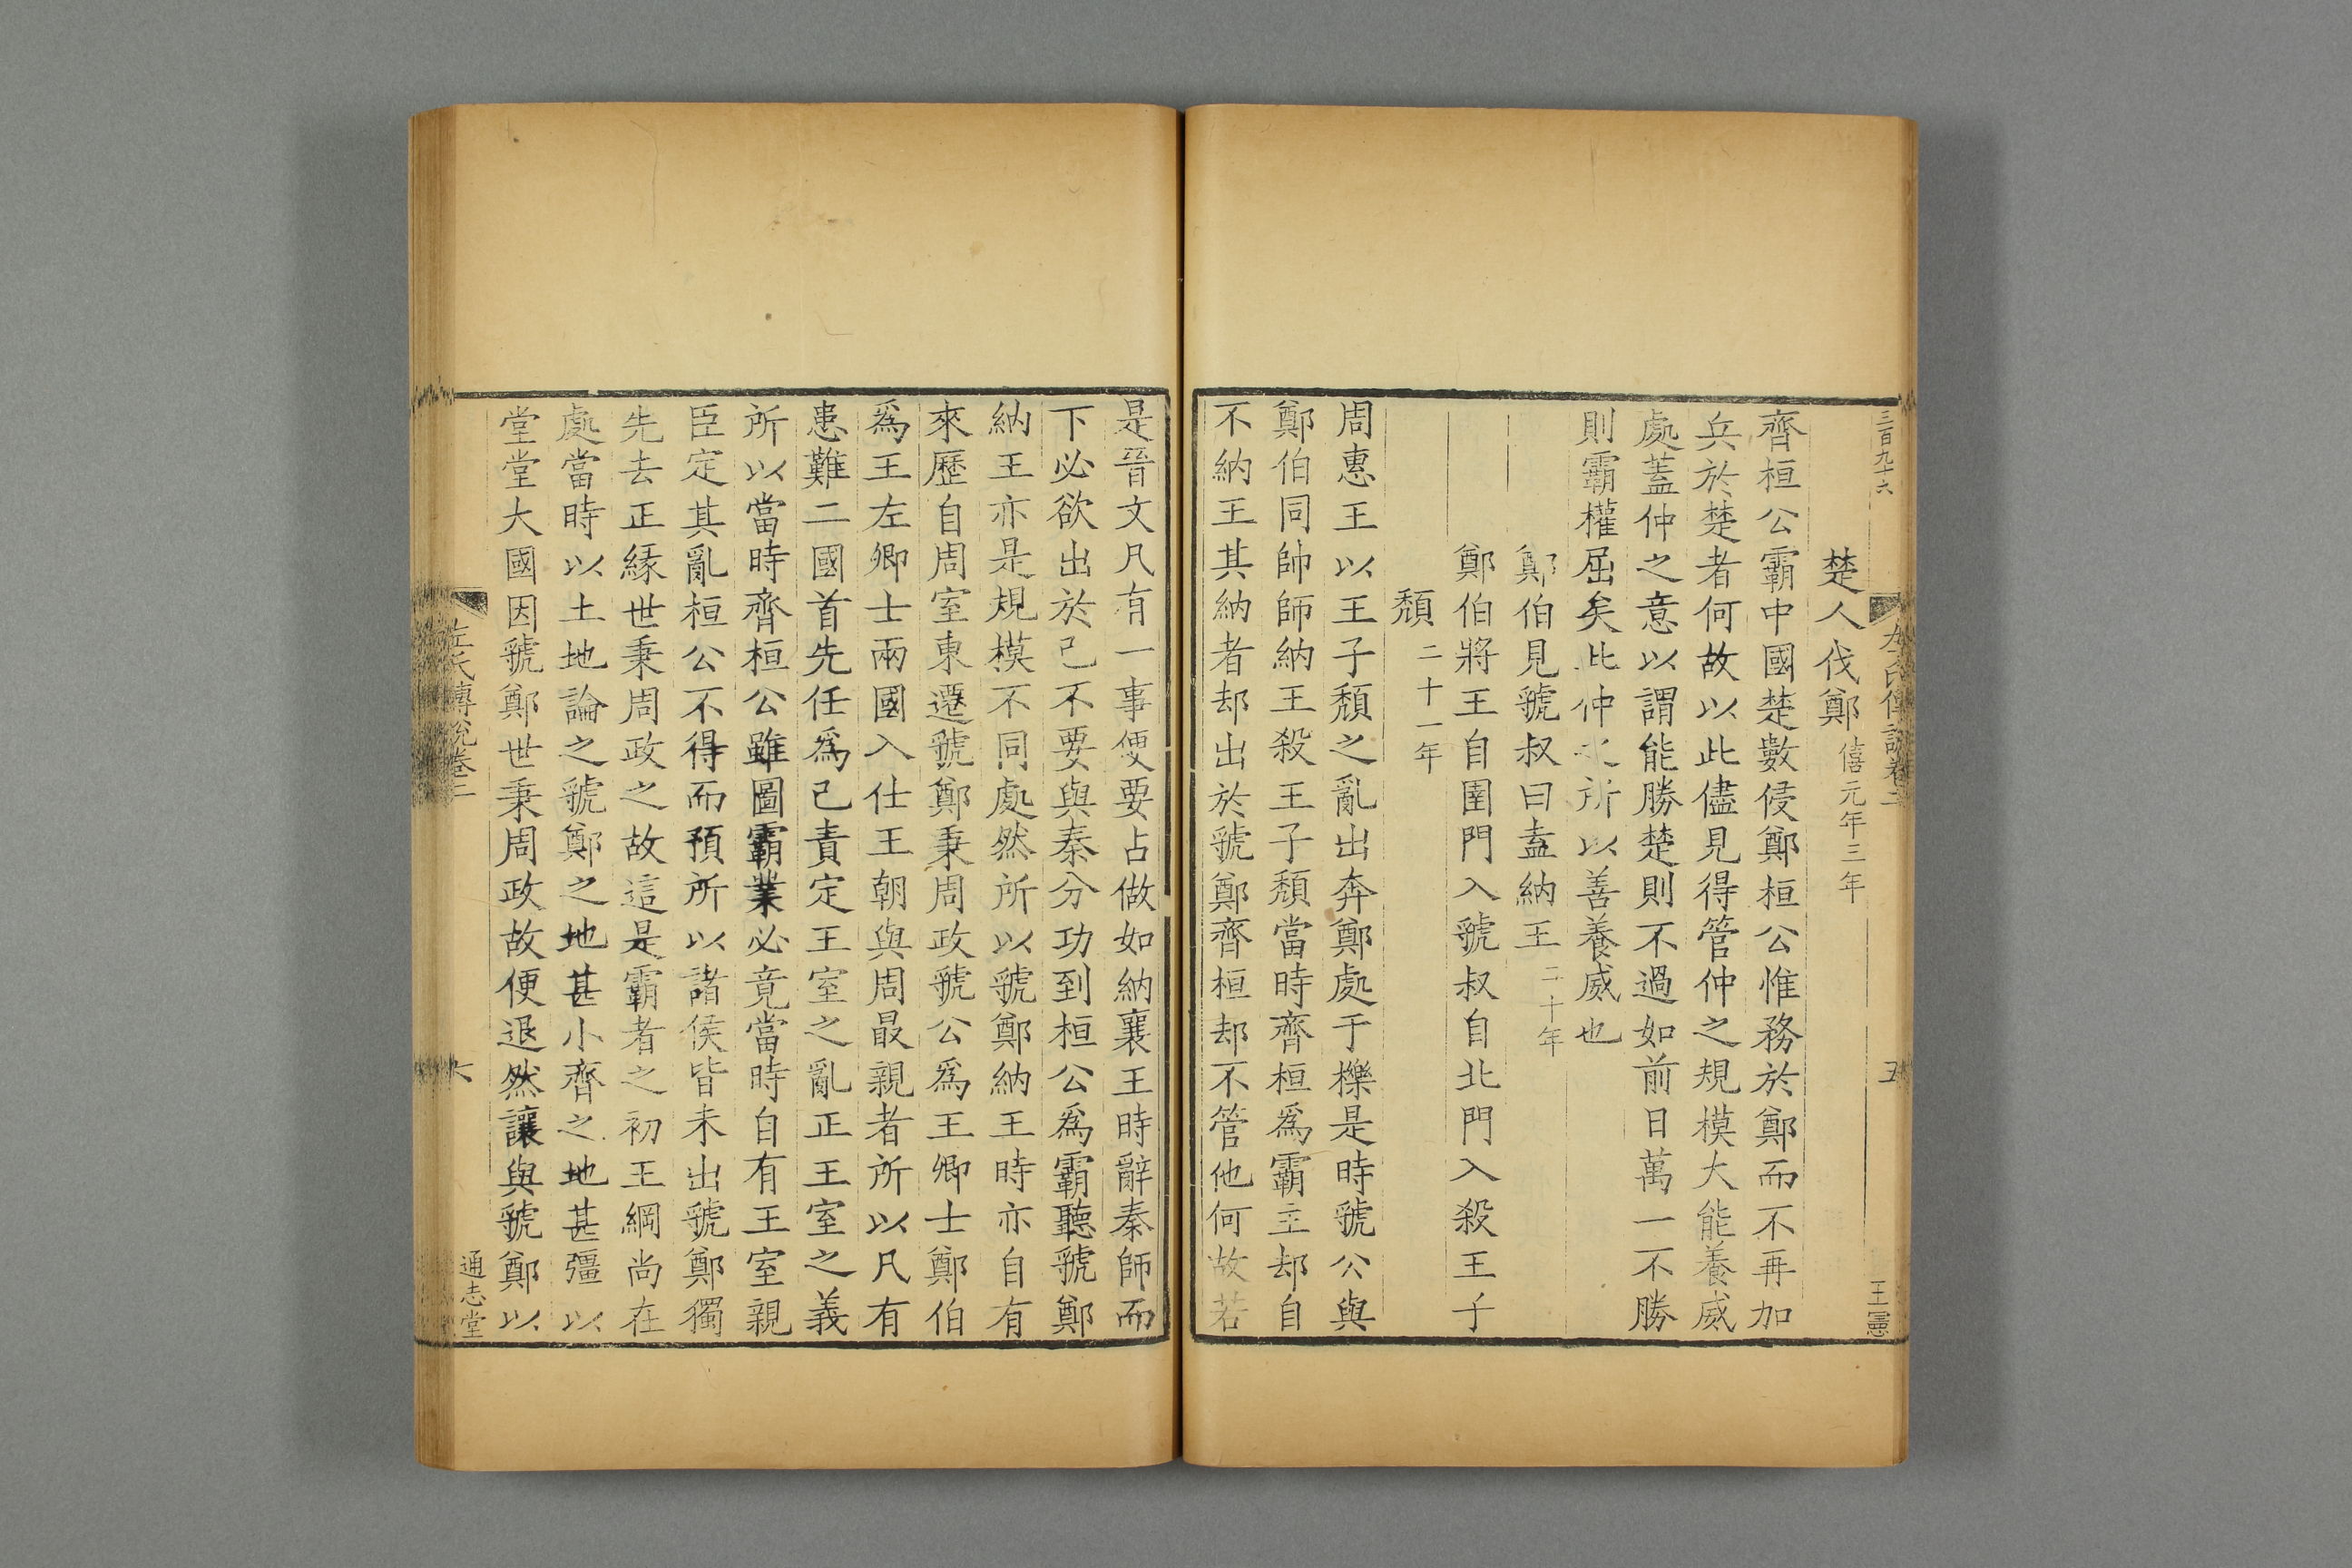 三百九十六
左氏傳說卷二
五
王憲
楚人伐鄭僖元年三年
齊桓公霸中國楚數侵鄭桓公惟務於鄭而不再加
兵於楚者何故以此儘見得管仲之規模大能養威
處蓋仲之意以謂能勝楚則不過如前日萬一不勝
則霸權屈矣此仲之所以善養威也
鄭伯見虢叔曰盍納王二十年
鄭伯將王自圉門入虢叔自北門入殺王子
頹二十一年
周惠王以王子頹之亂出奔鄭處于櫟是時虢公與
鄭伯同帥師納王殺王子頹當時齊桓爲霸主却自
不納王其納者却出於虢鄭齊桓却不管他何故若
是晉文凡有一事便要占做如納襄王時辭秦師而
下必欲出於己不要與秦分功到桓公爲霸聽虢鄭
納王亦是規模不同處然所以虢鄭納王時亦自有
來歷自周室東遷虢鄭秉周政虢公爲王卿士鄭伯
爲王左卿士兩國入仕王朝與周最親者所以凡有
患難二國首先任爲己責定王室之亂正王室之義
所以當時齊桓公雖圖霸業必竟當時自有王室親
臣定其亂桓公不得而預所以諸侯皆未出虢鄭獨
先去正緣世秉周政之故這是霸者之初王綱尚在
處當時以土地論之虢鄭之地甚小齊之地甚彊以
堂堂大國因虢鄭世秉周政故便退然讓與虢鄭以
左氏傳說卷二
六
通志堂